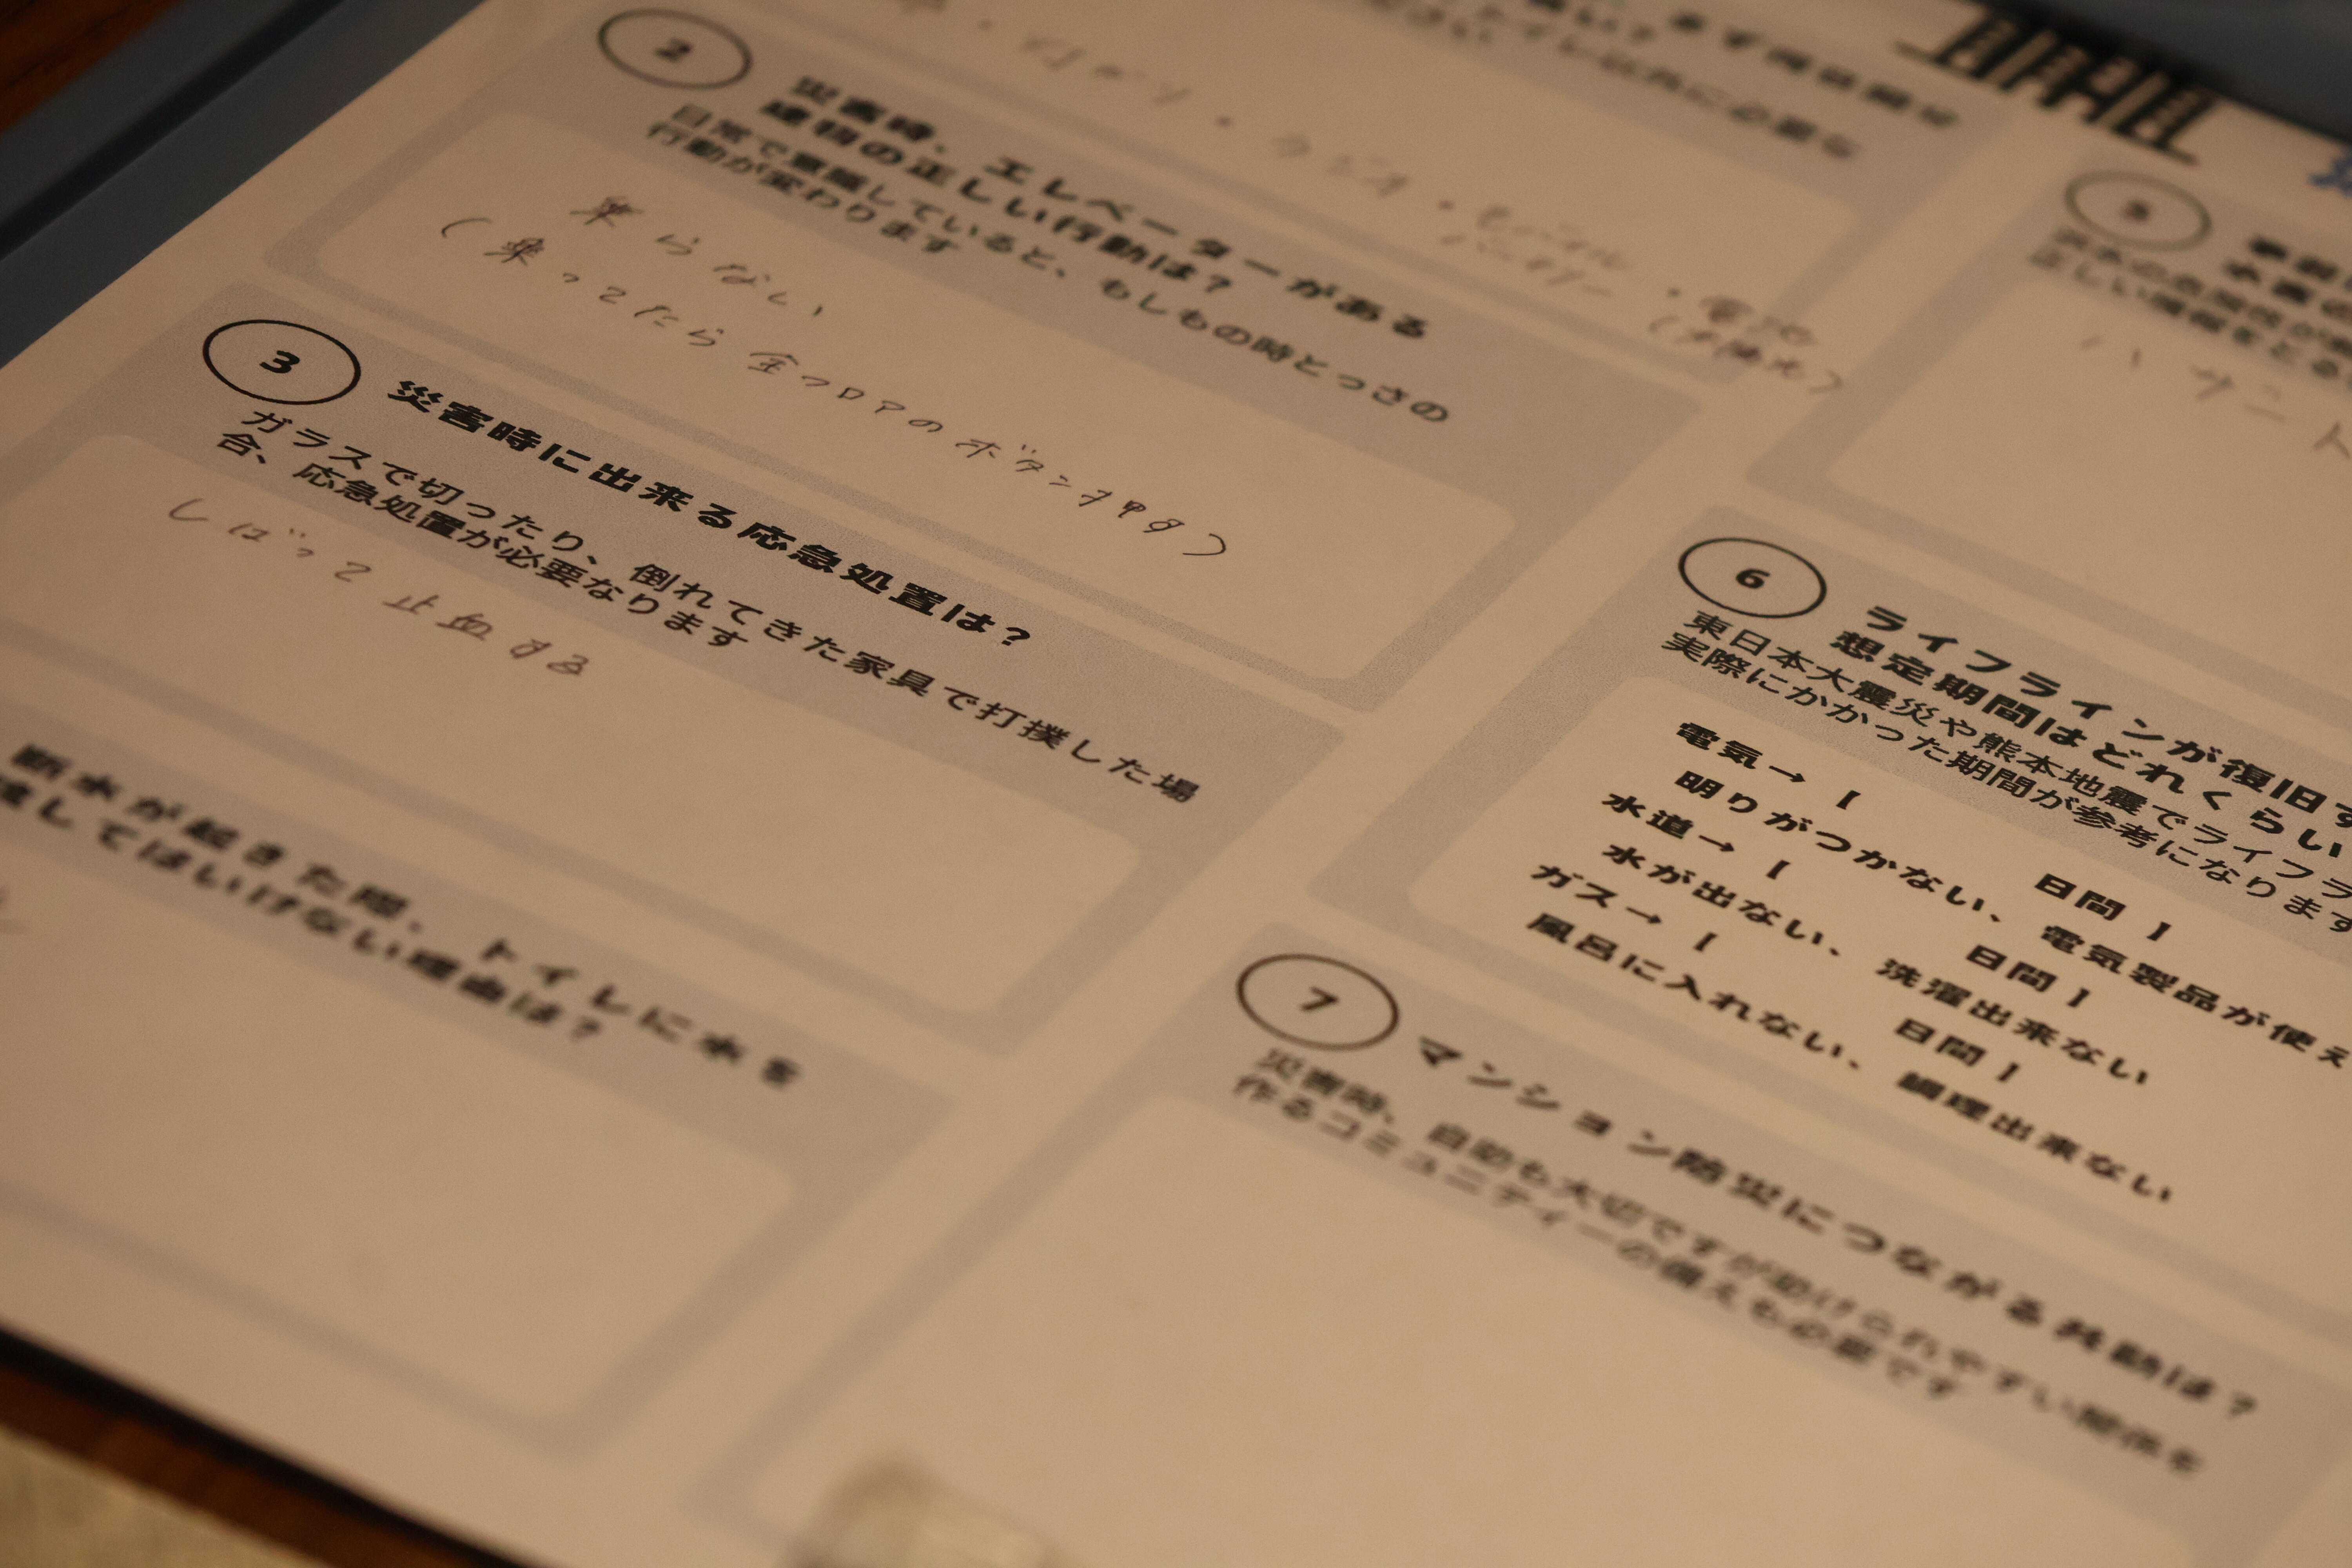 トイレ以外に必要な
・ラジオ・モバイル
バッテリー
・電池
(太陽光)
2
災害時、エレベーターがある
建物の正しい行動は?
日常で意識していると、もしもの時とっさの
行動が変わります
乗らない
(乗ってたら全フロアのボタンオす)
3
災害時に出来る応急処置は?
ガラスで切ったり、倒れてきた家具で打撲した場
合、応急処置が必要なります
しばって止血する
断水が起きた際、トイレに水を
流してはいけない理由は?
5
正しい情報をとる
ハザード
6
ライフラインが復旧す
想定期間はどれくらい
東日本大震災や熊本地震でライフラ
実際にかかった期間が参考になります
電気→【 日間】
明りがつかない、電気製品が使え
水道→【 日間】
水が出ない、洗濯出来ない
ガス→【 日間】
風呂に入れない、調理出来ない
7
マンション防災につながる共助は?
災害時、自助も大切ですが助けられやすい関係を
作るコミュニティーの備えも必要です